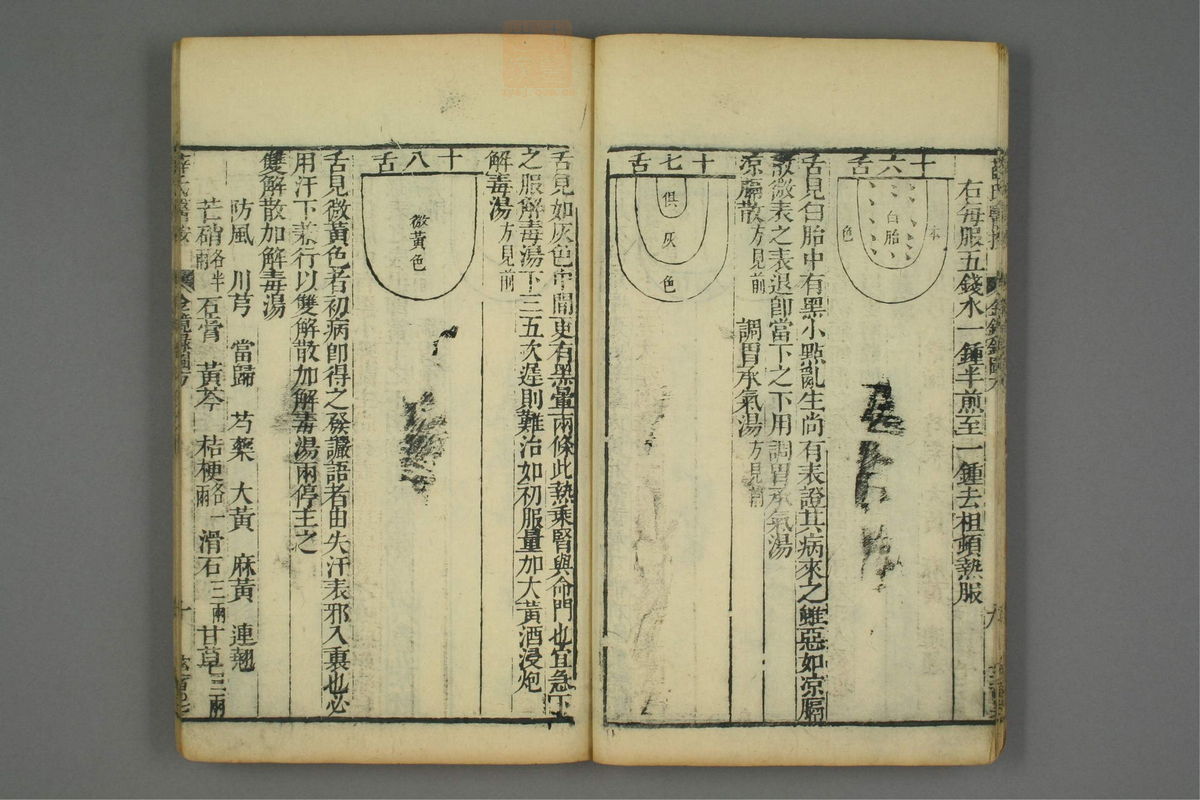 右每服五錢水一鍾半煎至一鍾去柤頓熱服
十六舌
本
白胎
色
舌見白胎中有黑小點亂生尚有表證其病來之雖惡如凉膈
散微表之表退卽當下之下用調胃承氣湯
凉膈散方見前 調胃承氣湯方見前
十七舌
俱
灰
色
舌見如灰色中間更有黑暈兩條此熱乘腎與命門也宜急下
之服解毒湯下三五次遲則難治如初服量加大黃酒浸炮
解毒湯方見前
十八舌
微黃色
舌見微黃色者初病卽得之發譫語者由失汗表邪入裏也必
用汗下兼行以雙解散加解毒湯兩停主之
雙解散加解毒湯
防風 川芎 當歸 芍藥 大黃 麻黃 連翹
芒硝各半兩 石膏 黃芩 桔梗各一兩 滑石三兩 甘草二兩
薛氏醫按 金鏡錄圖方 十